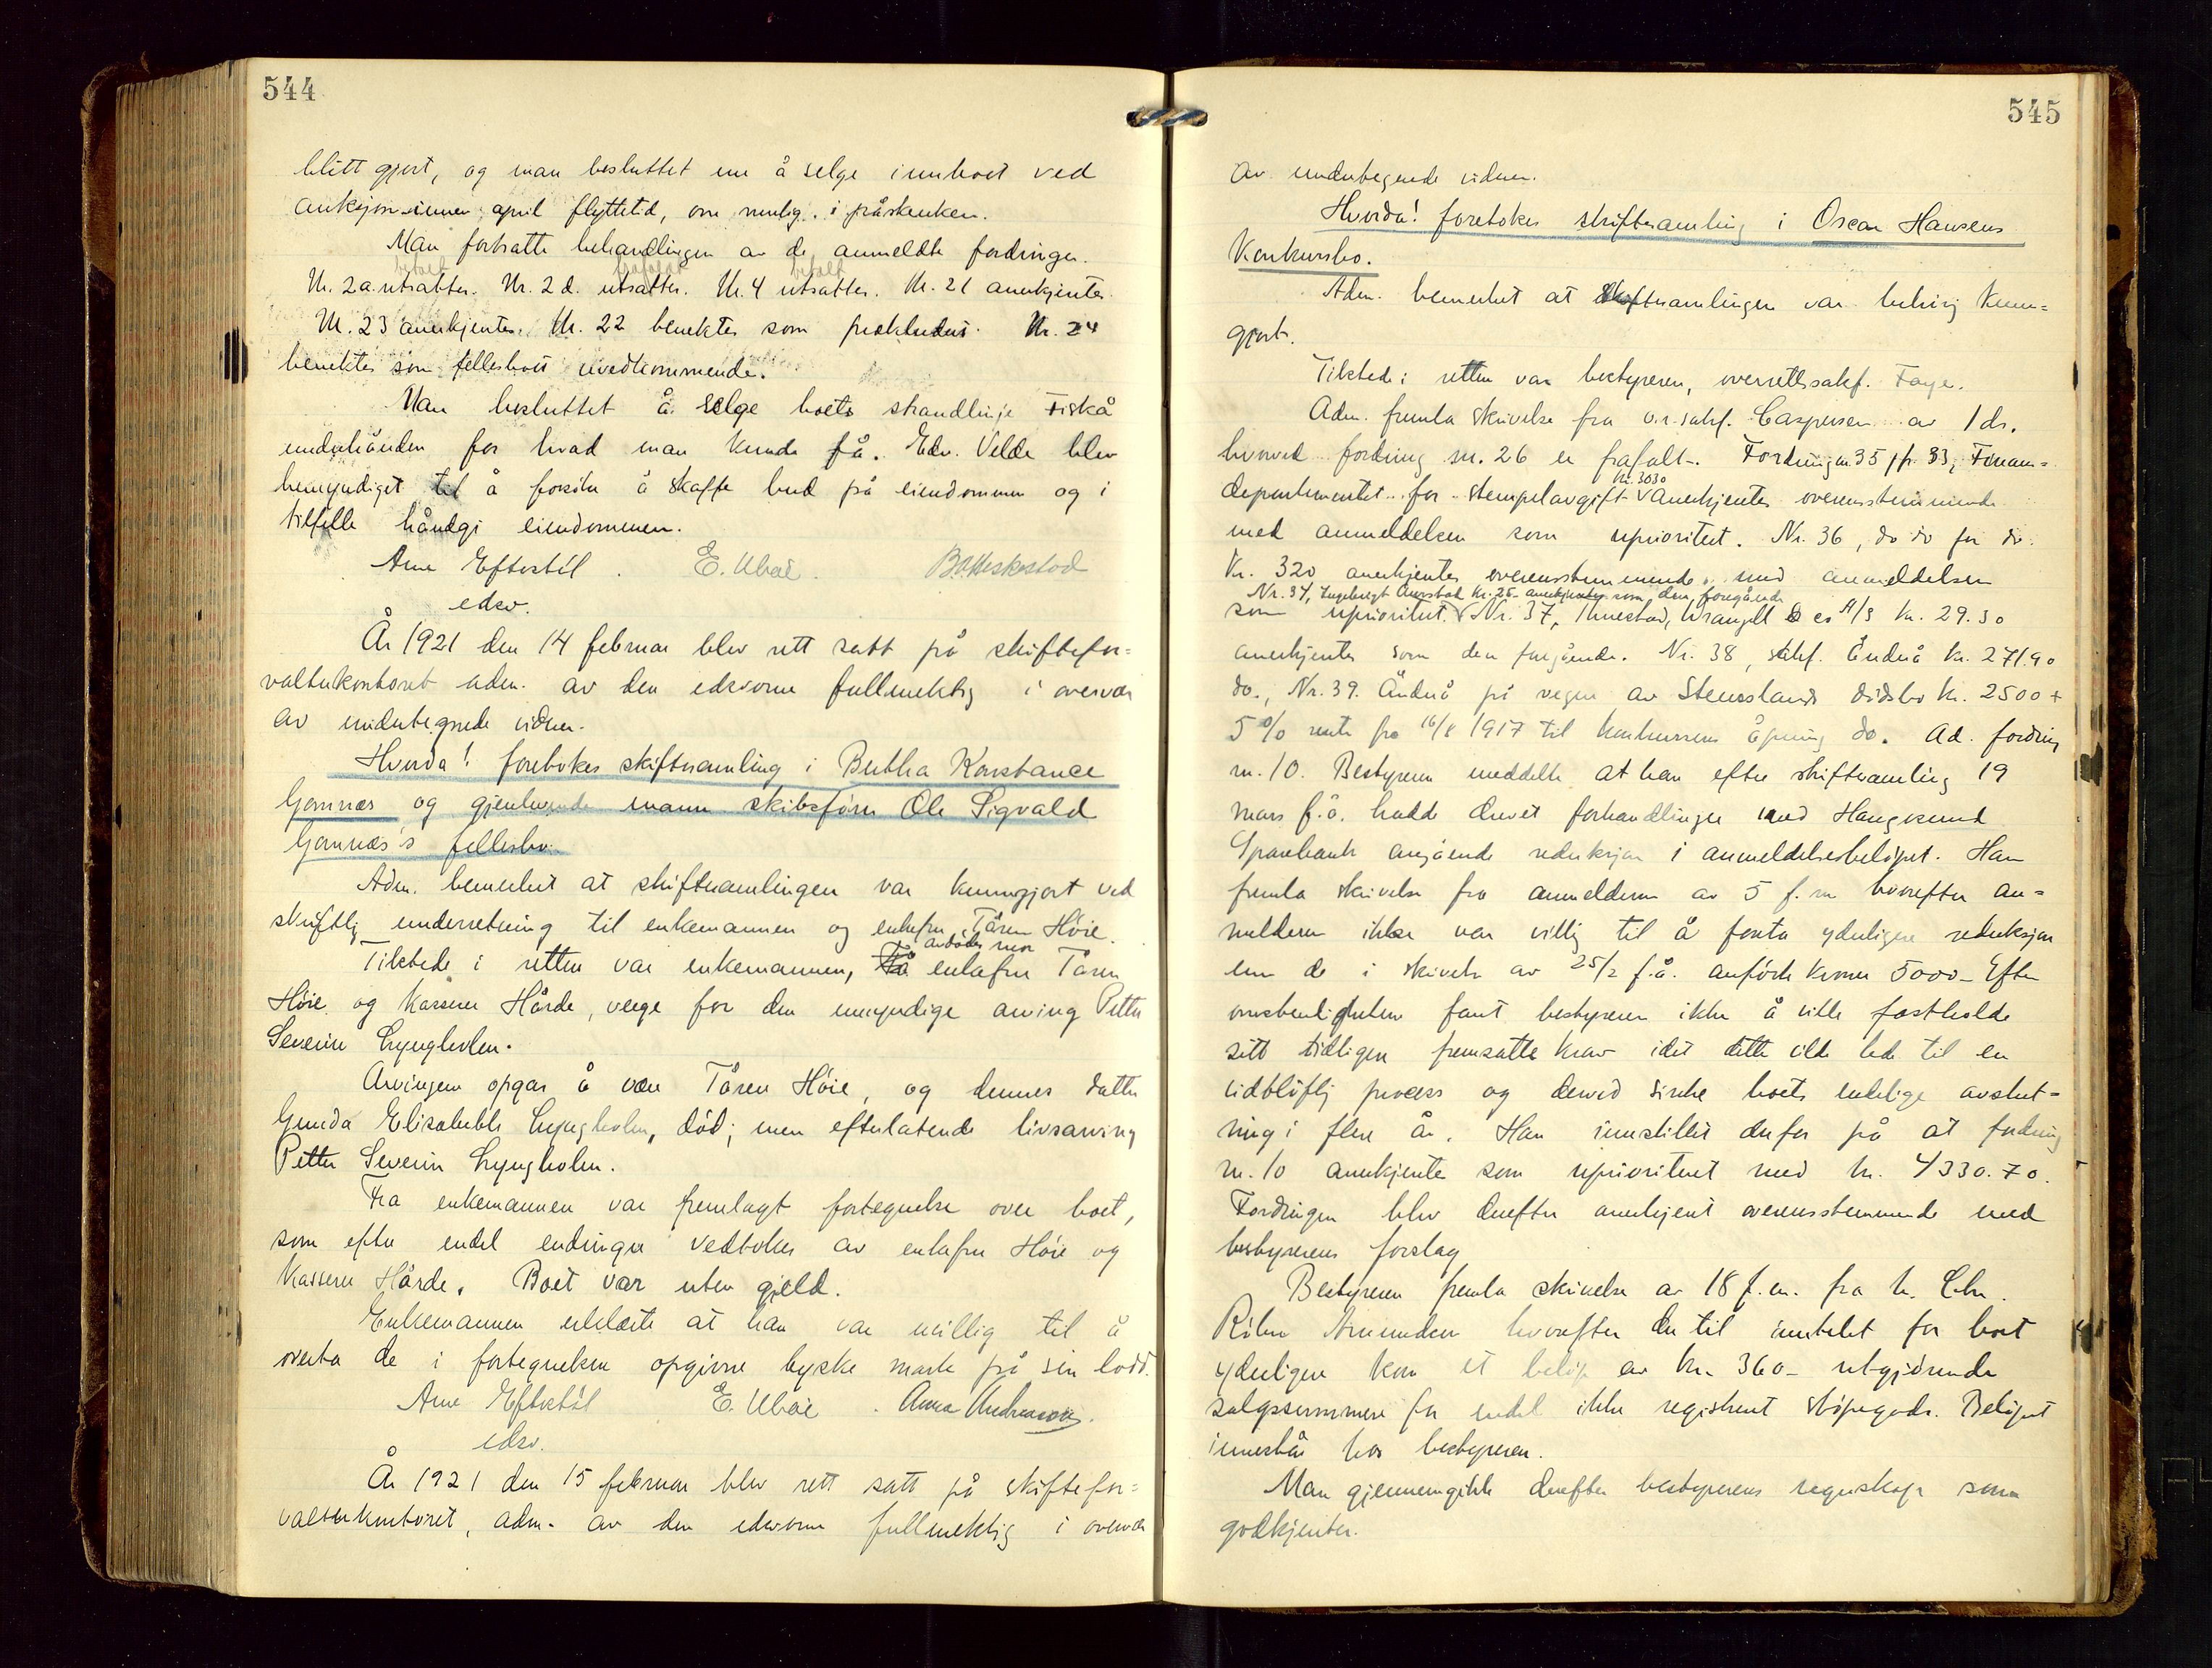 544
blitt gjort, og man besluttet nu å selge innboet ved
auksjon innen april flyttetid, om mulig. i påskeuken.
Man fortsatte behandlingen av de anmeldte fordringer.
betalt frafalt betalt
Nr. 2a. utsattes. Nr. 2d. utsattes. Nr. 4 utsattes. Nr. 21 anerkjentes.
Nr. 23 anerkjentes. Nr. 22 benektes som prekludert. Nr. 24
benektes som fellesboet uvedkommende.
Man besluttet å selge boets strandlinje Fiskå
underhånden for hvad man kunde få. Edv. Velde blev
bemyndiget til å forsøke å skaffe bud på eiendommen og i
tilfelle håndgi eiendommen.
Arne Eftestøl. E. Ubøe.
edsv.
År 1921 den 14 februar blev rett satt på skiftefor=
valterkontoret adm. av den edsvorne fullmektig i overvær
av undertegnede vidner.
Hvorda! foretokes skiftesamling i Bertha Konstance
Gomnæs og gjenlevende mann skibsfører Ole Sigvald
Gomnæs's fellesbo.
Adm. bemerket at skiftesamlingen var kunngjort ved
skriftlig underretning til enkemannen og enkefru Tåren Höie.
avdødes mor
Tilstede i retten var enkemannen, enkefru Tåren
Höie og kasserer Hårde, verge for den umyndige arving Petter
Severin Lyngholm.
Arvingene opgas å være Tåren Höie, og dennes datter
Gunda Elisabeth Lyngholm, död; men efterlatende livsarving
Petter Severin Lyngholm.
Fra enkemannen var fremlagt fortegnelse over boet,
som efter endel endringer vedtokes av enkefru Höie og
kasserer Hårde. Boet var uten gjeld.
Enkemannen erklærte at han var uvillig til å
overta de i fortegnelsen opgivne tyske mark på sin lodd.
Arne Eftestøl E. Ubøe. Anna Andreassen.
edsv.
År 1921 den 15 februar blev rett satt på skiftefor=
valterkontoret, adm. av den edsvorne fullmektig i overvær
545
av undertegnede vidner.
Hvorda! foretokes skiftesamling i Oscar Hansens
Konkursbo.
Adm. bemerket at skiftesamlingen var behörig kunn=
gjort.
Tilstede i retten var bestyreren, overrettssakf. Faye.
Adm. fremla skrivelse fra o.r.sakf. Caspersen av 1 ds.
hvorved fordring nr. 26 er frafalt. Fordringen 35 jfr. 33, Finans=
kr. 3030
departementet for stempelavgift anerkjentes overensstemmende
med anmeldelsen som uprioritert. Nr. 36, do do for do.
Kr. 320 anerkjentes overensstemmende med anmeldelsen
Nr. 34, Ingebrigt Aarstad kr. 25 anerkjentes som den foregående
som uprioritert. Nr. 37, Wrangell & co A/S kr. 29.30
anerkjentes som den foregående. Nr. 38, sakf. Åndnå kr. 271.90
do., Nr. 39. Åndnå på vegne av Stenslands dödsbo kr. 2500 +
5 % rente fra 16/8 1917 til konkursens åpning do. Ad. fordring
nr. 10. Bestyreren meddelte at han efter skiftesamling 19
mars f.å. hadde drevet forhandlinger med Haugesund
Sparebank angående reduksjon i anmeldelsesbelöpet. Han
fremla skrivelse fra anmelderen av 5 f.m. hvorefter an=
melderen ikke var villig til å foreta yderligere reduksjon
enn de i skrivelse av 25/2 f.å. anförte kroner 5000- Efter
omstendighetene fant bestyreren ikke å ville fastholde
sitt tidligere fremsatte krav idet dette vilde lede til en
vidtlöftig process og derved sinke boets endelige avslut=
ning i flere år. Han innstillet derfor på at fordring
nr. 10 anerkjentes som uprioritert med kr. 4330.70.
Fordringen blev derefter anerkjent overensstemmende med
bestyrerens forslag
Bestyreren fremla skrivelse av 18 f.m. fra h. Chr.
hvorefter der til inntekt for boet
yderligere kom et belöp av kr. 360- utgjörende
salgssummen for endel ikke registrert stöpegods. Belöpet
innestår hos bestyreren.
Man gjennemgikk derefter bestyrerens regnskap som
godkjentes.